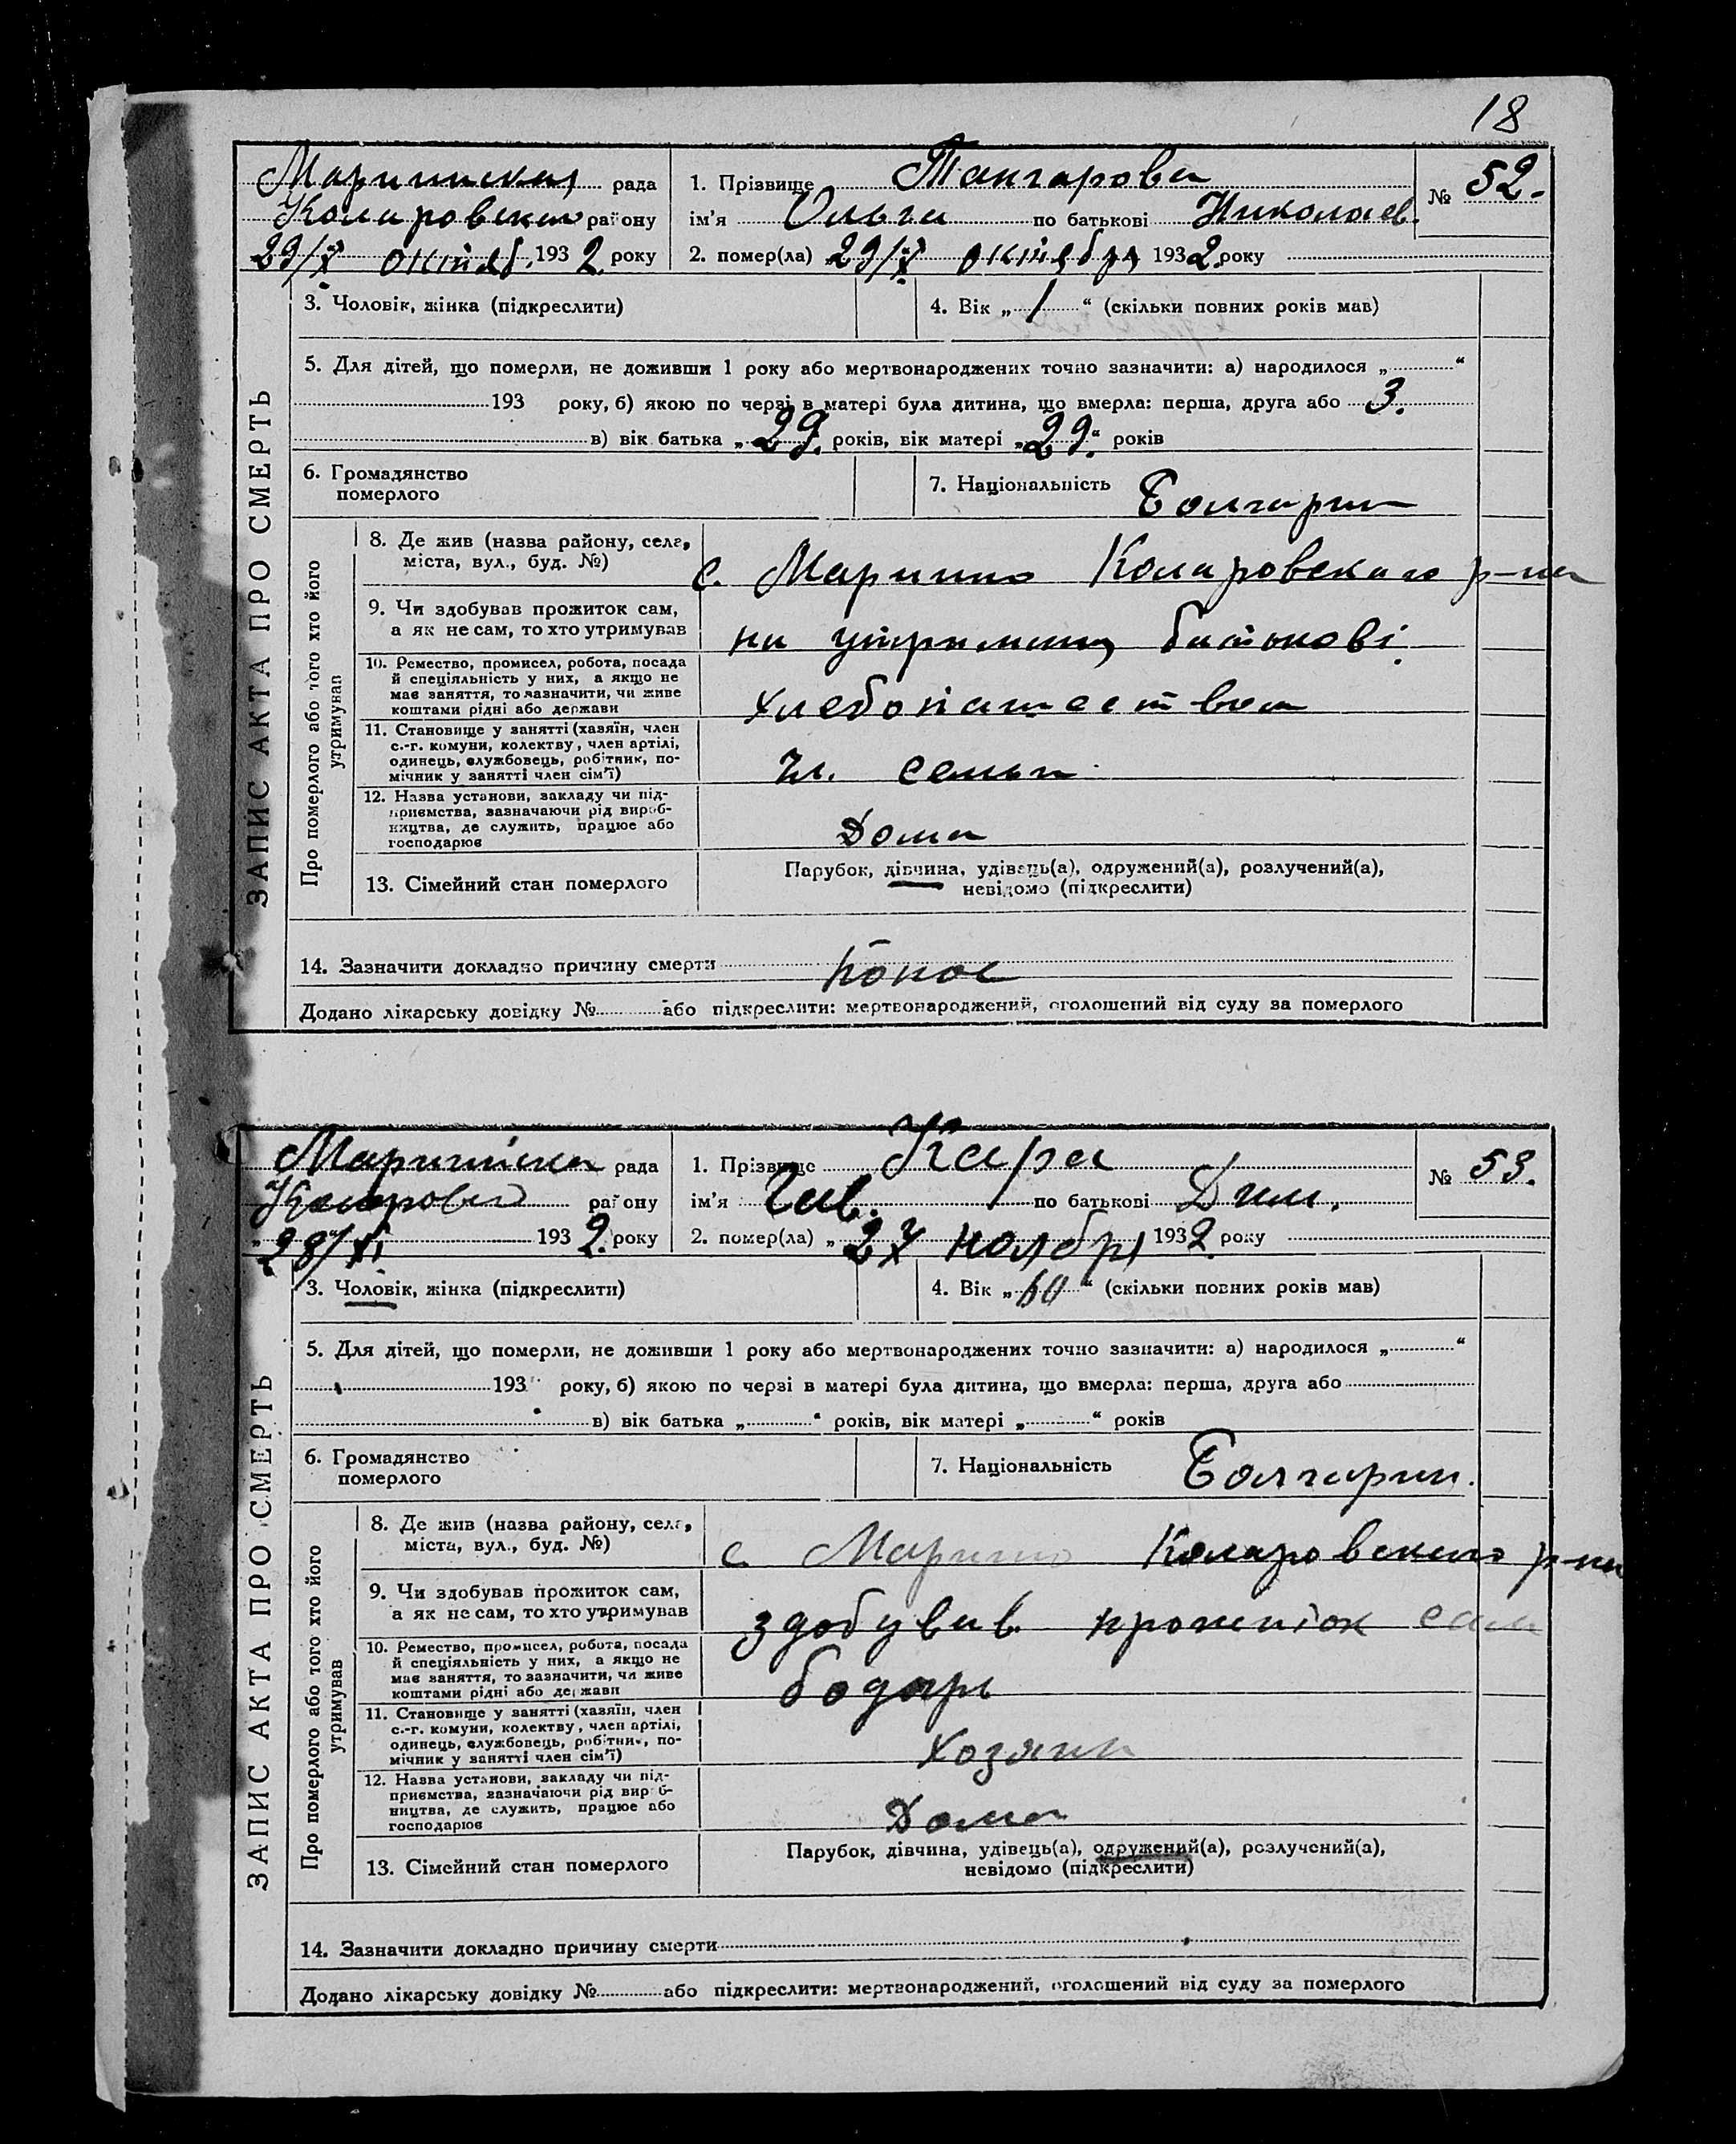 18
Мариинская рада
Коларовского району
29/X октяб. 1932 року
1. Прізвище Тангарова
ім'я Ольга по батькові Николаев.
2. помер(ла) 29/X октября 1932 року
№ 52.
ЗАПИС АКТА ПРО СМЕРТЬ
3. Чоловік, жінка (підкреслити)
4. Вік „1“ (скільки повних років мав)
5. Для дітей, що померли, не доживши 1 року або мертвонароджених точно зазначити: а) народилося „ “
193 року, б) якою по черзі в матері була дитина, що вмерла: перша, друга або 3.
в) вік батька „29. років, вік матері „29.“ років
6. Громадянство
померлого
7. Національність Болгарин
Про померлого або того хто його
утримував
8. Де жив (назва району, села,
міста, вул., буд. №)
с. Марино Коларовского р-на
9. Чи здобував прожиток сам,
а як не сам, то хто утримував
на утриманц батькові
10. Ремество, промисел, робота, посада
й спеціяльність у них, а якщо не
має заняття, то зазначити, чи живе
коштами рідні або держави
хлебопашеством
11. Становище у занятті (хазяїн, член
с.-г. комуни, колектву, член артілі,
одинець, службовець, робітник, по-
мічник у занятті член сім'ї)
Чл. семьи
12. Назва установи, закладу чи під-
приємства, зазначаючи рід вироб-
ництва, де служить, працює або
господарює
Дома
13. Сімейний стан померлого
Парубок, дівчина, удівець(а), одружений(а), розлучений(а),
невідомо (підкреслити)
14. Зазначити докладно причину смерти понос
Додано лікарську довідку № або підкреслити: мертвонароджений, оголошений від суду за померлого
Мариинска рада
Коларовск району
„28/XI 1932. року
1. Прізвище Кара
ім'я Сав. по батькові Дим.
2. помер(ла) „27 ноября 1932 року
№ 53.
ЗАПИС АКТА ПРО СМЕРТЬ
3. Чоловік, жінка (підкреслити)
4. Вік „60“ (скільки повних років мав)
5. Для дітей, що померли, не доживши 1 року або мертвонароджених точно зазначити: а) народилося „ “
193 року, б) якою по черзі в матері була дитина, що вмерла: перша, друга або
в) вік батька „ “ років, вік матері „ “ років
6. Громадянство
померлого
7. Національність Болгарин.
Про померлого або того хто його
утримував
8. Де жив (назва району, села,
міста, вул., буд. №)
с. Марино Коларовского р-на
9. Чи здобував прожиток сам,
а як не сам, то хто утримував
здобував прожиток сам
10. Ремество, промисел, робота, посада
й спеціяльність у них, а якщо не
має заняття, то зазначити, чи живе
коштами рідні або держави
бодарь
11. Становище у занятті (хазяїн, член
с.-г. комуни, колектву, член артілі,
одинець, службовець, робітник, по-
мічник у занятті член сім'ї)
Хозяин
12. Назва установи, закладу чи під-
приємства, зазначаючи рід вироб-
ництва, де служить, працює або
господарює
Дома
13. Сімейний стан померлого
Парубок, дівчина, удівець(а), одружений(а), розлучений(а),
невідомо (підкреслити)
14. Зазначити докладно причину смерти
Додано лікарську довідку № або підкреслити: мертвонароджений, оголошений від суду за померлого